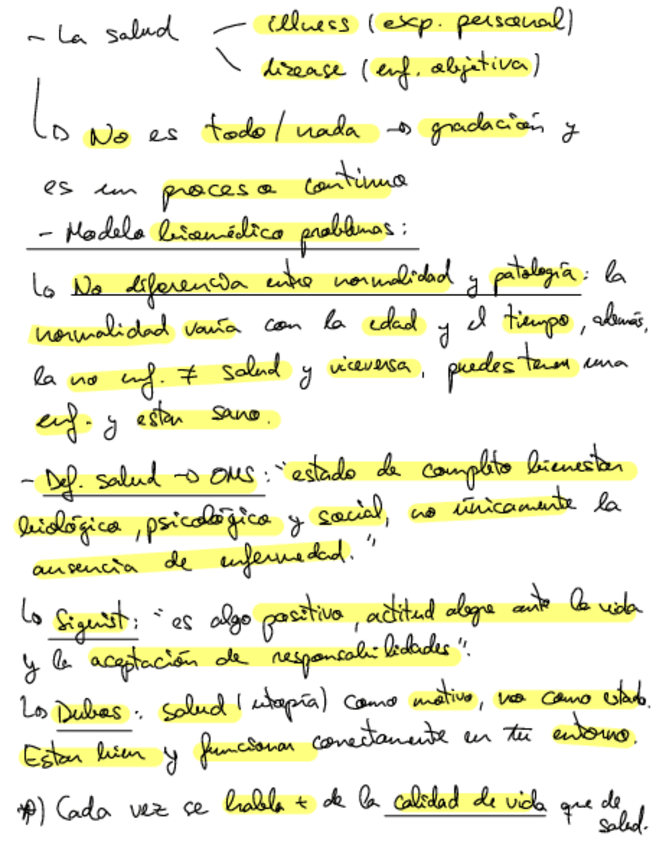 - La salud — illness (exp. personal)
\ disease (enf. objetiva)
↳ No es todo/nada → gradación y
es un proceso continuo
- Modelo biomédico problemas:
↳ No diferencia entre normalidad y patología: la
normalidad varía con la edad y el tiempo, además,
la no enf. ≠ salud y viceversa, puedes tener una
enf. y estar sano.
- Def. salud → OMS: "estado de completo bienestar
biológico, psicológico y social, no únicamente la
ausencia de enfermedad."
↳ Sigerist: "es algo positivo, actitud alegre ante la vida
y la aceptación de responsabilidades".
↳ Dubos: salud (utopía) como motivo, no como estado.
Estar bien y funcionar correctamente en tu entorno.
*) Cada vez se habla + de la calidad de vida que de
salud.